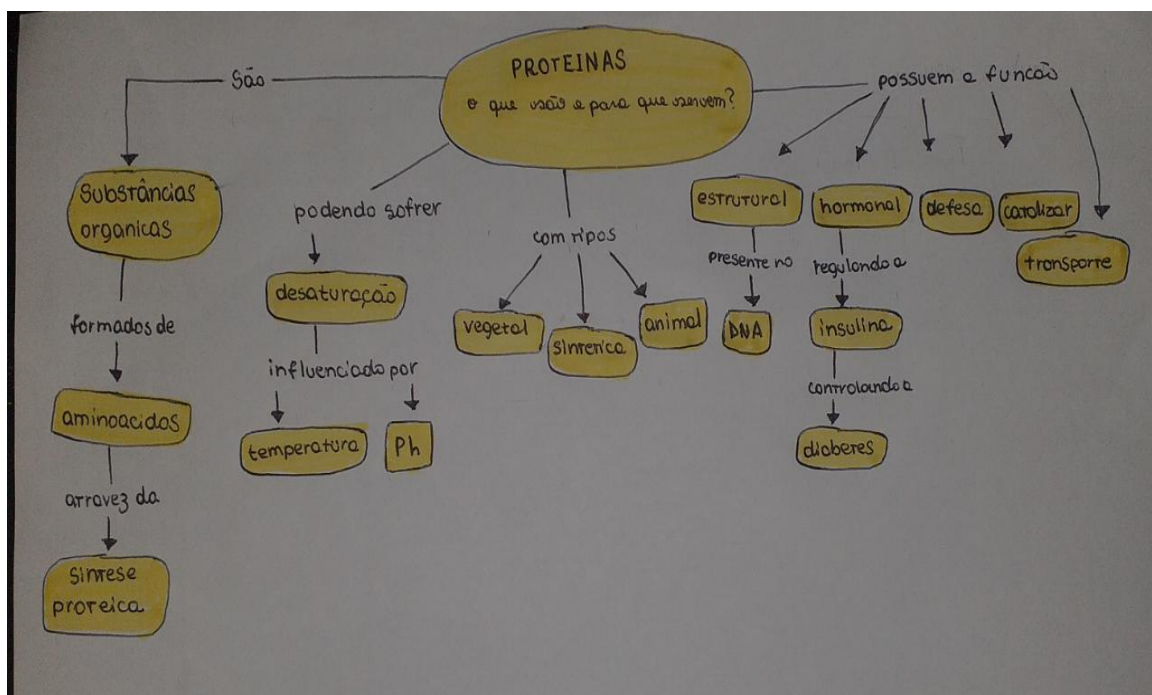 PROTEINAS
o que são e para que servem?
São
substâncias
organicas
formados de
aminoacidos
atravez da
sintese
proteica
podendo sofrer
desaturação
influenciado por
temperatura
Ph
com tipos
vegetal
sintetica
animal
possuem a funcão
estrutural
presente no
DNA
hormonal
regulando a
insulina
controlando a
diabetes
defesa
catalizar
transporte